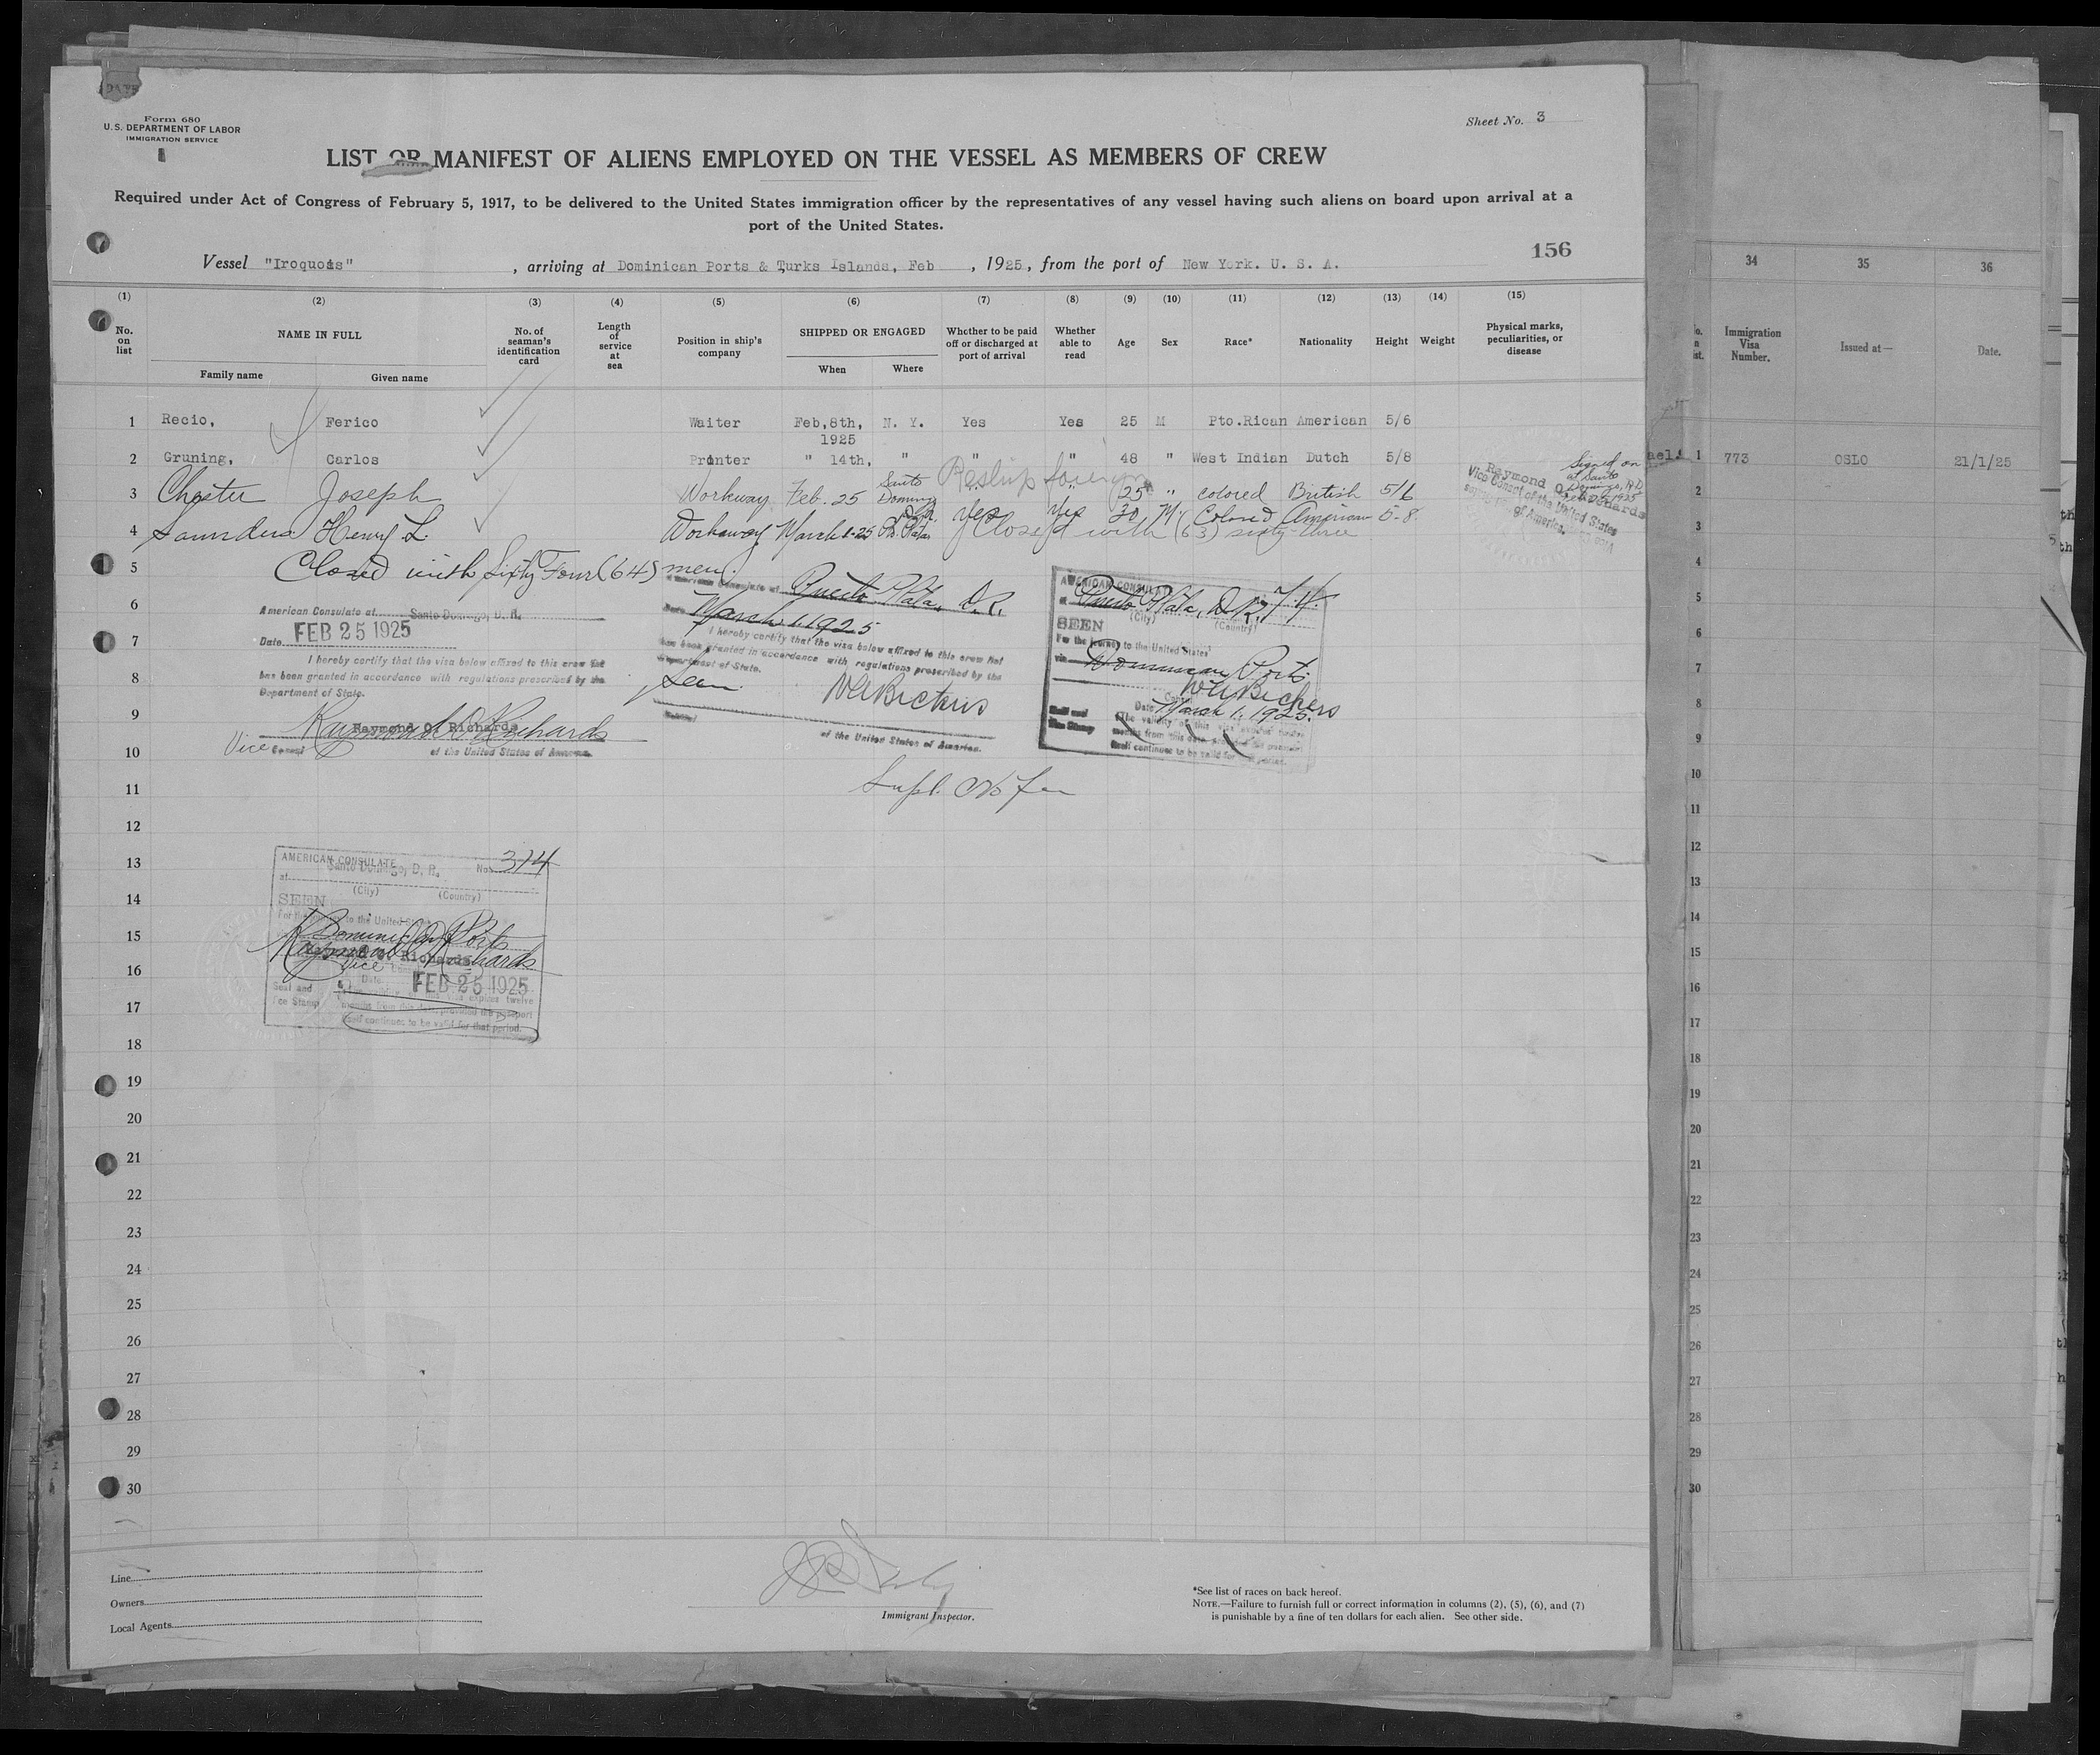 Form 680
U.S. DEPARTMENT OF LABOR
IMMIGRATION SERVICE
Sheet No. 3
LIST OR MANIFEST OF ALIENS EMPLOYED ON THE VESSEL AS MEMBERS OF CREW
Required under Act of Congress of February 5, 1917, to be delivered to the United States immigration officer by the representatives of any vessel having such aliens on board upon arrival at a
port of the United States.
156
Vessel "Iroquois" , arriving at Dominican Ports & Turks Islands, Feb , 1925, from the port of New York. U. S. A.
(1) (2) (3) (4) (5) (6) (7) (8) (9) (10) (11) (12) (13) (14) (15)
No. on list
NAME IN FULL
Family name Given name
No. of seaman's identification card
Length of service at sea
Position in ship's company
SHIPPED OR ENGAGED
When Where
Whether to be paid off or discharged at port of arrival
Whether able to read
Age Sex Race* Nationality Height Weight
Physical marks, peculiarities, or disease
1 Recio, Ferico Waiter Feb,8th, N. Y. Yes Yes 25 M Pto.Rican American 5/6
1925
2 Gruning, Carlos Printer " 14th, " " " 48 " West Indian Dutch 5/8
Reship foreign
3 Chester Joseph Workway Feb. 25 Santo Domingo " " 25 " colored British 5/6
4 Saunders Henry L. Workaway March 1-25 Pto. Plata yes yes 30 M. Colored American 5-8
Closed with (63) sixty-three
Signed on
at Santo
Domingo, R.D.
Feb. 25 1925
Raymond O. Richards
Vice Consul of the United States
of America.
5 Closed with Sixty Four (64) men.
6
American Consulate at Santo Domingo, D. R.
Date FEB 25 1925
I hereby certify that the visa below affixed to this crew list
has been granted in accordance with regulations prescribed by the
Department of State.
Raymond O. Richards
Vice Consul of the United States of America.
American Consulate at Puerto Plata, D.R.
Date March 1, 1925
I hereby certify that the visa below affixed to this crew list
has been granted in accordance with regulations prescribed by the
Department of State.
Seen
W A Bickers
of the United States of America.
AMERICAN CONSULATE
at Puerto Plata, D.R. 74
(City) (Country)
SEEN
For the journey to the United States
via Dominican Ports
W A Bickers
Date March 1, 1925.
Seal and
Fee Stamp
(The validity of this visa expires twelve
months from this date provided the passport
itself continues to be valid for that period.
7
8
9
10
11
Supl. No fee
12
13
14
15
16
17
18
19
20
21
22
23
24
25
26
27
28
29
30
AMERICAN CONSULATE
at Santo Domingo, D. R. No. 314
(City) (Country)
SEEN
For the journey to the United States
Dominican Ports
Raymond O. Richards
Vice
Date FEB 25 1925
Seal and
Fee Stamp
expires twelve
months from this date, provided the passport
itself continues to be valid for that period.
Line
Owners
Local Agents
Immigrant Inspector.
*See list of races on back hereof.
NOTE.—Failure to furnish full or correct information in columns (2), (5), (6), and (7)
is punishable by a fine of ten dollars for each alien. See other side.
34 35 36
Immigration Visa Number. Issued at— Date.
1 773 OSLO 21/1/25
2
3
4
5
6
7
8
9
10
11
12
13
14
15
16
17
18
19
20
21
22
23
24
25
26
27
28
29
30